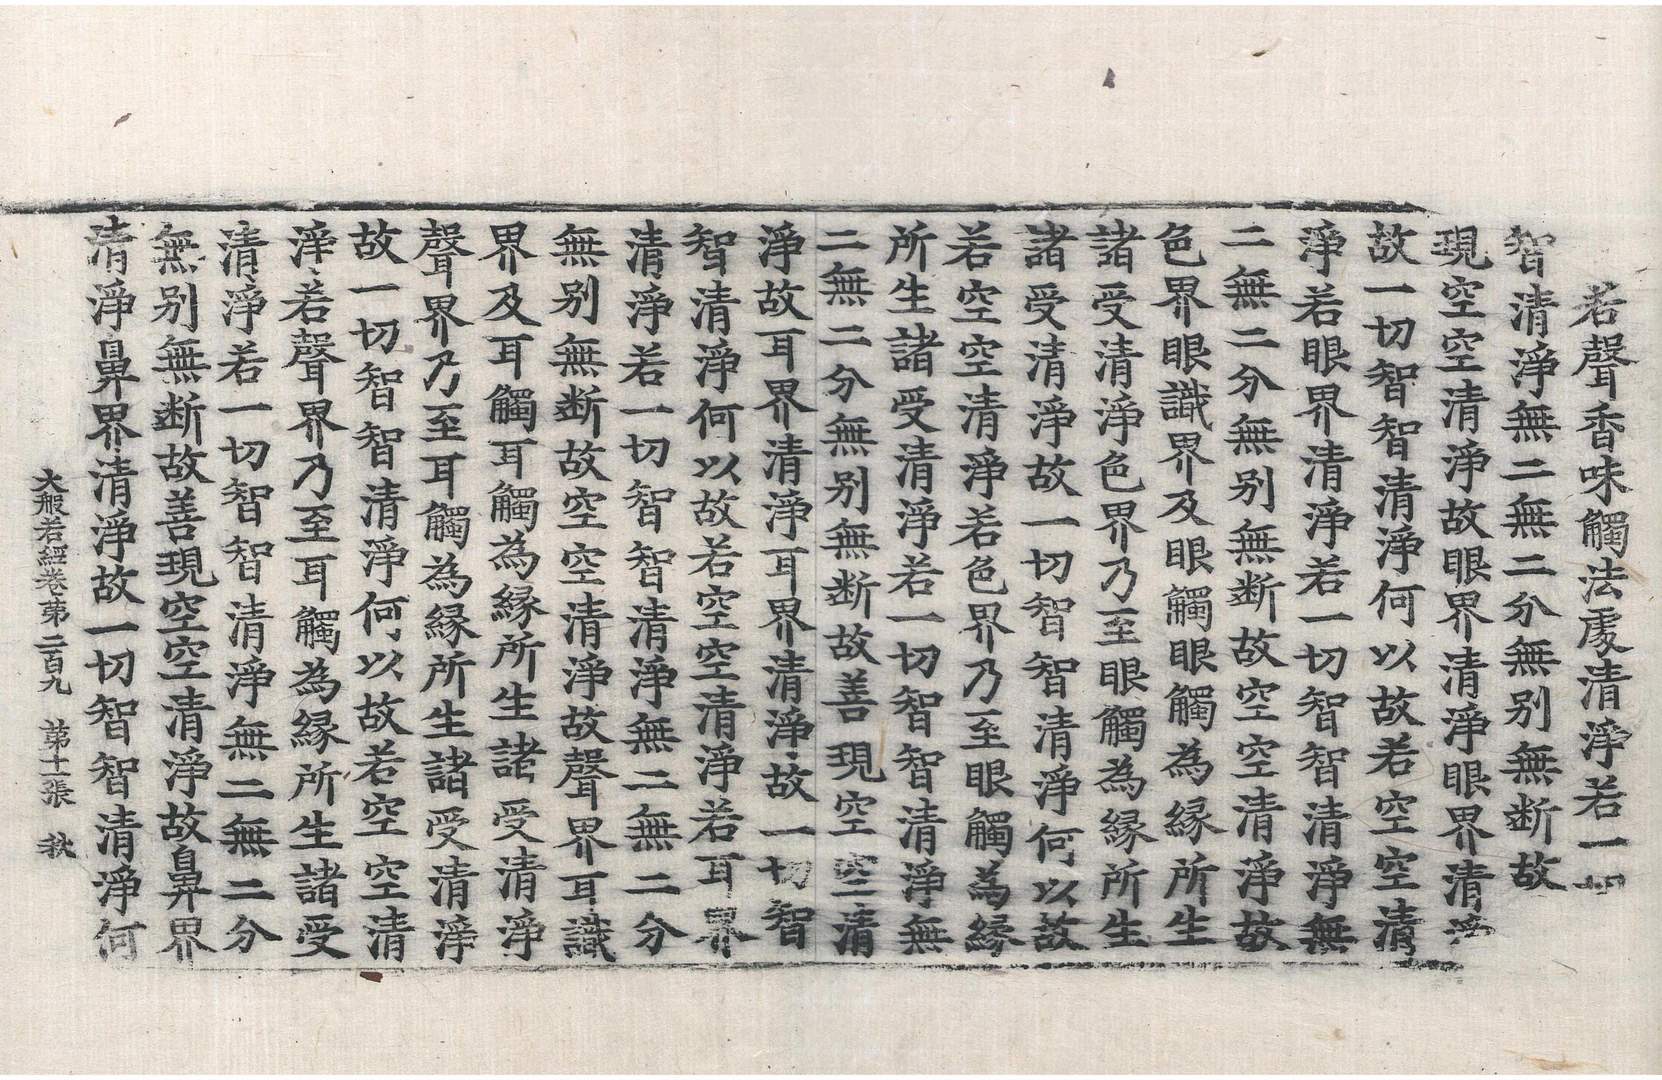 若聲香味觸法處清淨若一切
智清淨無二無二分無別無断故
現空空清淨故眼界清淨眼界清淨
故一切智智清淨何以故若空空清
淨若眼界清淨若一切智智清淨無
二無二分無別無断故空空清淨故
色界眼識界及眼觸眼觸為縁所生
諸受清淨色界乃至眼觸為縁所生
諸受清淨故一切智智清淨何以故
若空空清淨若色界乃至眼觸為縁
所生諸受清淨若一切智智清淨無
二無二分無別無断故善現空空清
淨故耳界清淨耳界清淨故一切智
智清淨何以故若空空清淨若耳界
清淨若一切智智清淨無二無二分
無別無断故空空清淨故聲界耳識
界及耳觸耳觸為縁所生諸受清淨
聲界乃至耳觸為縁所生諸受清淨
故一切智智清淨何以故若空空清
淨若聲界乃至耳觸為縁所生諸受
清淨若一切智智清淨無二無二分
無別無断故善現空空清淨故鼻界
清淨鼻界清淨故一切智智清淨何
大般若經卷第二百九 第十一張 秋